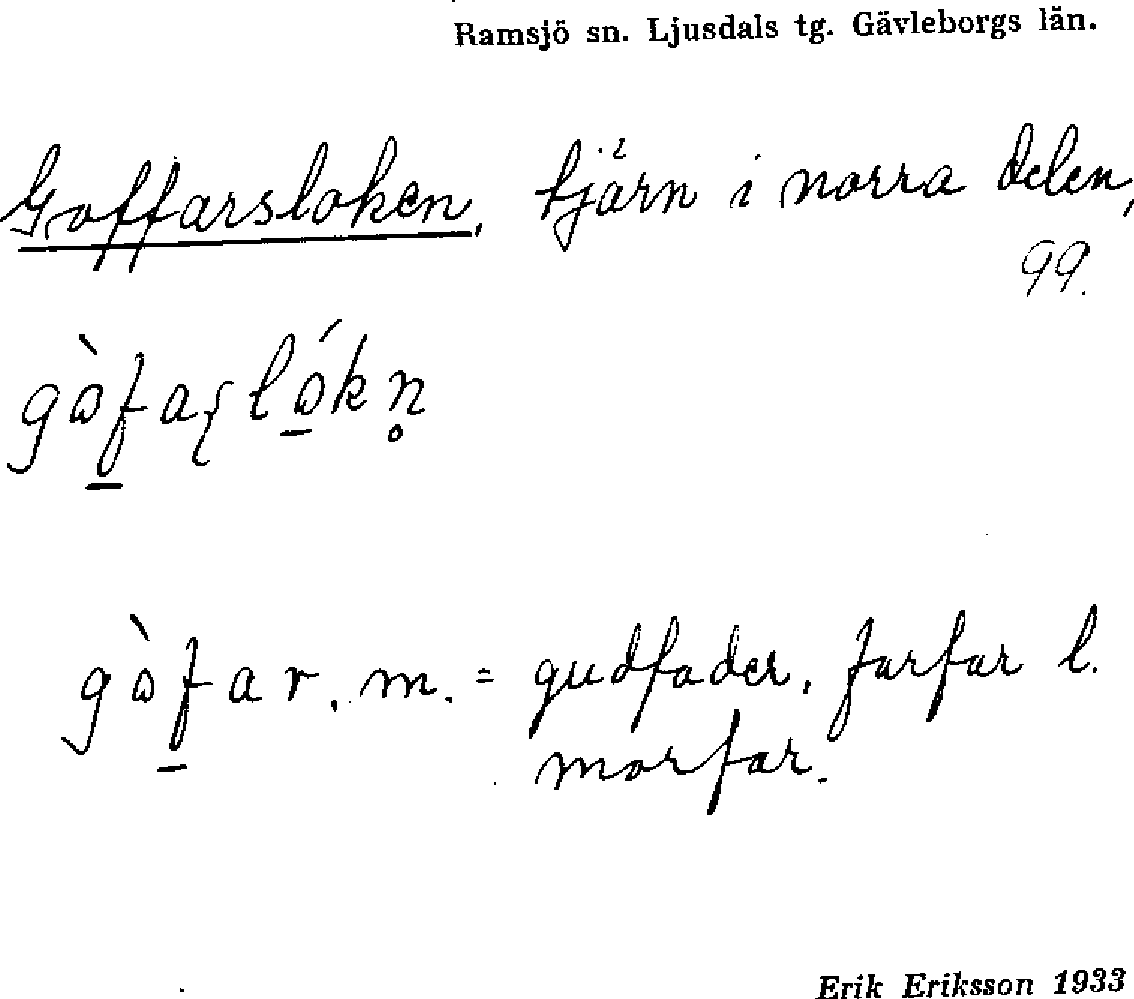 Ramsjö sn. Ljusdals tg. Gävleborgs län.
Goffarsloken, tjärn i norra delen,
99.
gòf̲aʂló̲kn̥
gòf̲ar, m. = gudfader, farfar l.
morfar.
Erik Eriksson 1933